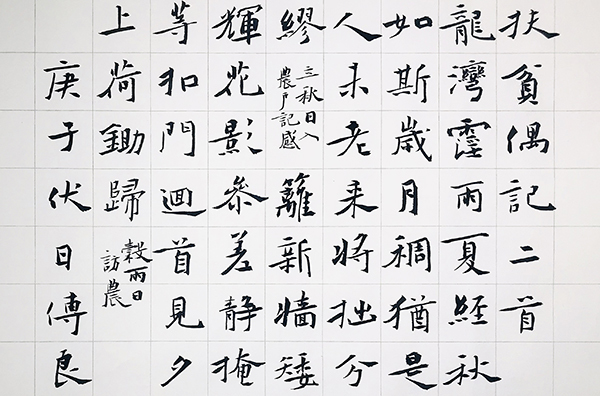 扶貧偶記二首
龍灣霪雨夏經秋
如斯歲月稠猶是
人未老来將拙兮
繆
三秋日入
農戶記感
籬新墻矮
輝花影參差静掩
等扣門迴首見夕
上荷鋤歸
穀雨日
訪農
庚子伏日傅良